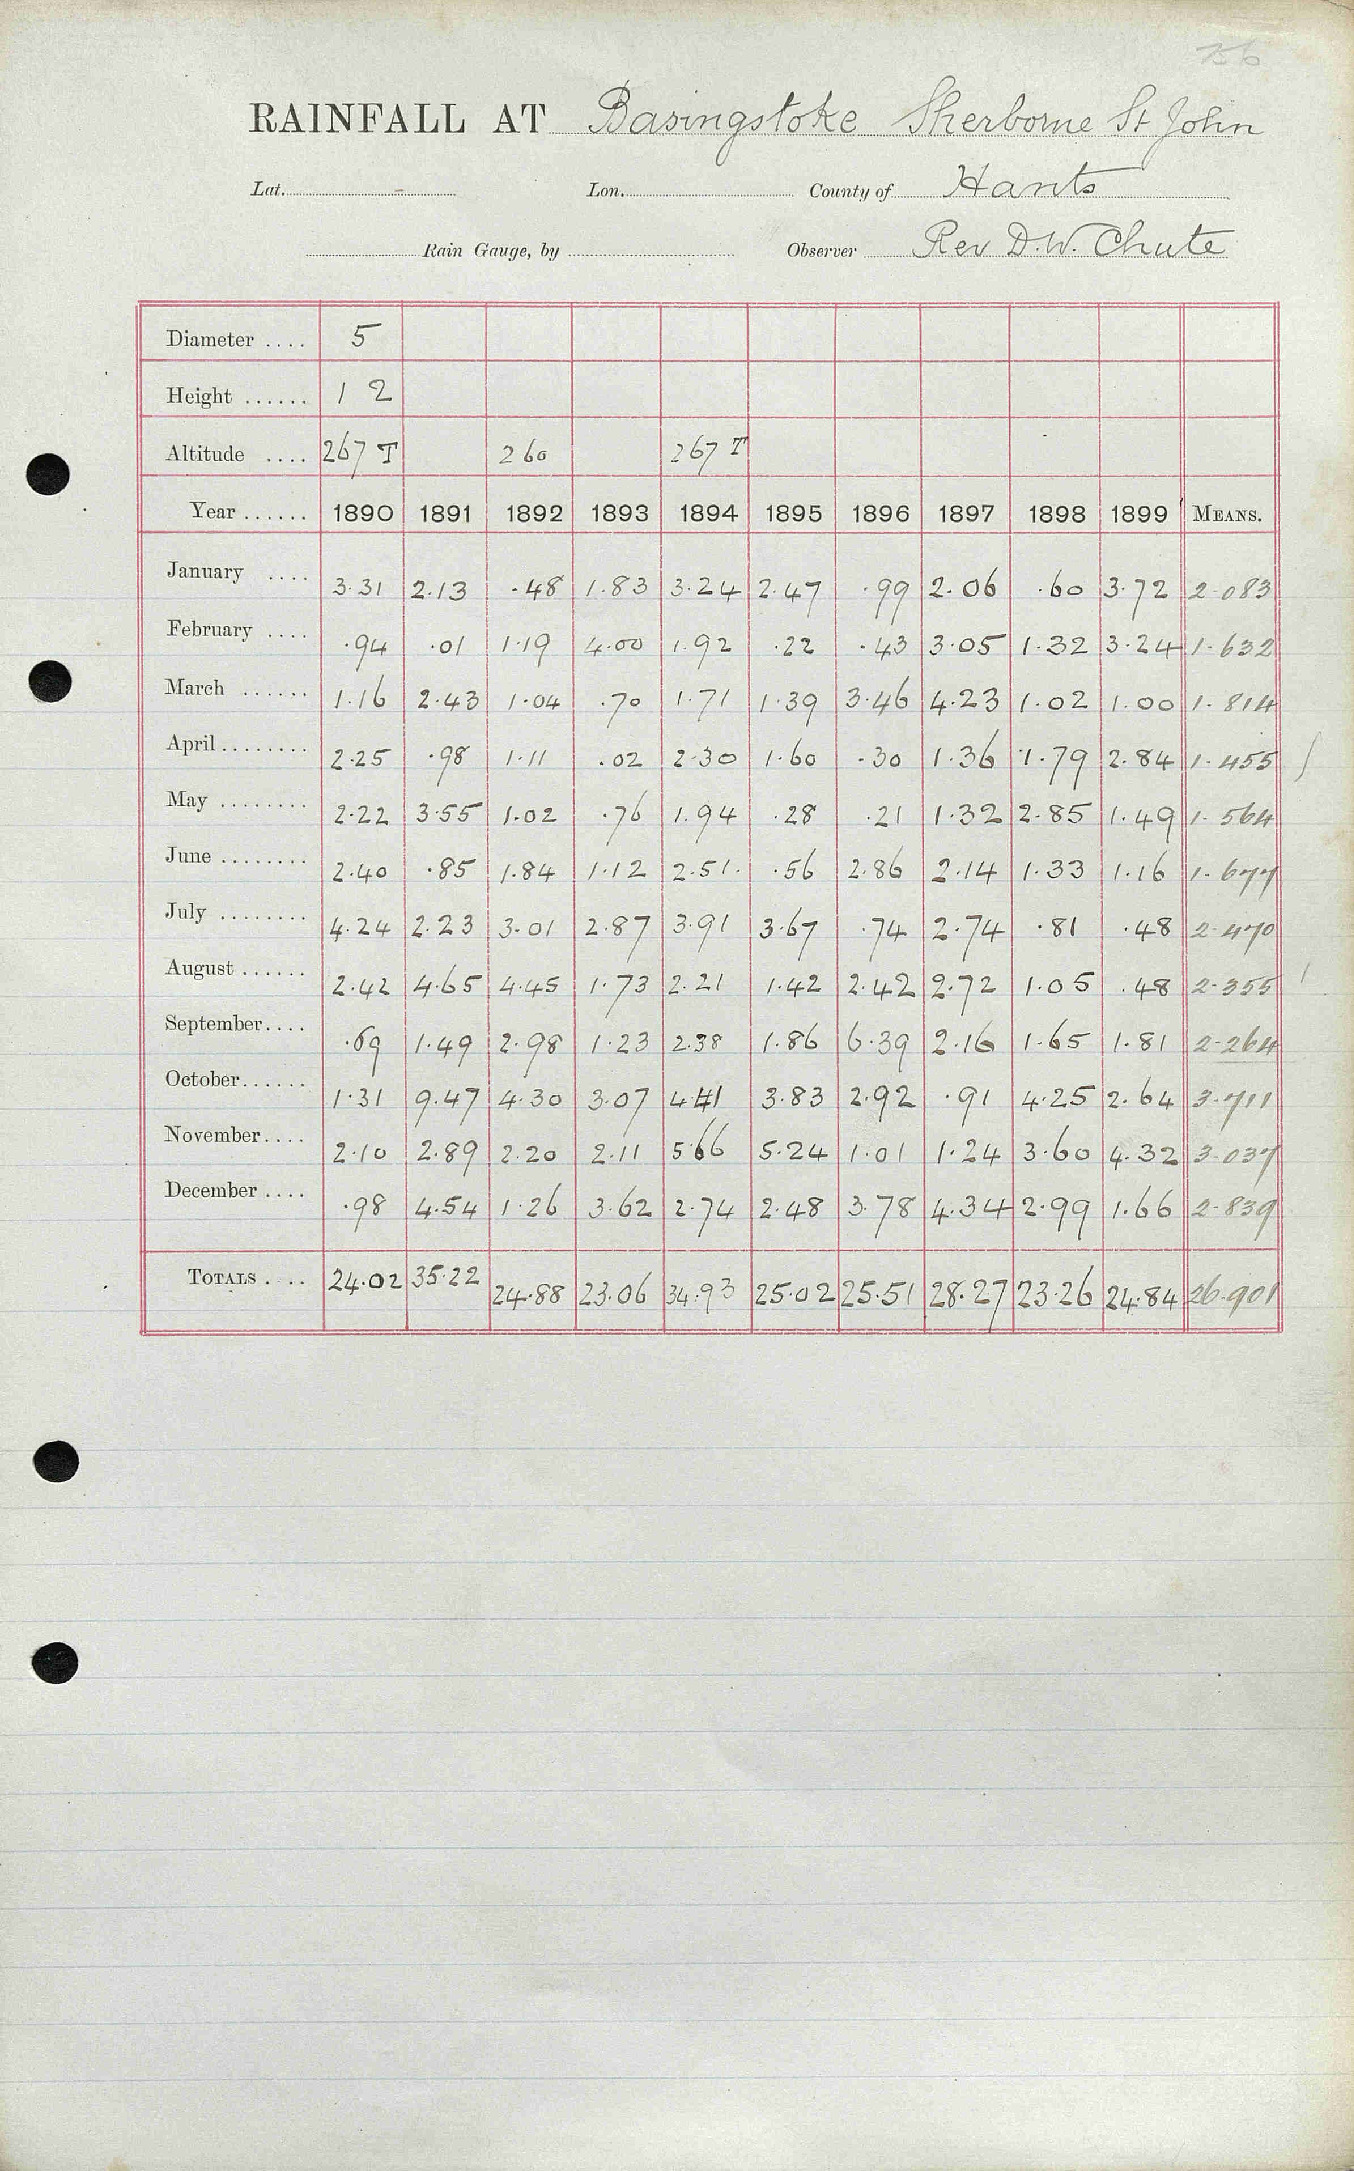 256
RAINFALL AT Basingstoke Sherborne St John
Lat. - Lon. County of Hants
Rain Gauge, by Observer Rev D.W. Chute
Diameter .... 5
Height ...... 1 2
Altitude .... 267 T 260 267 T
Year ...... 1890 1891 1892 1893 1894 1895 1896 1897 1898 1899 MEANS.
January .... 3.31 2.13 .48 1.83 3.24 2.47 .99 2.06 .60 3.72 2.083
February .... .94 .01 1.19 4.00 1.92 .22 .43 3.05 1.32 3.24 1.632
March ...... 1.16 2.43 1.04 .70 1.71 1.39 3.46 4.23 1.02 1.00 1.814
April ........ 2.25 .98 1.11 .02 2.30 1.60 .30 1.36 1.79 2.84 1.455
May ........ 2.22 3.55 1.02 .76 1.94 .28 .21 1.32 2.85 1.49 1.564
June ........ 2.40 .85 1.84 1.12 2.51 .56 2.86 2.14 1.33 1.16 1.677
July ........ 4.24 2.23 3.01 2.87 3.91 3.67 .74 2.74 .81 .48 2.470
August ...... 2.42 4.65 4.45 1.73 2.21 1.42 2.42 2.72 1.05 .48 2.355
September .... .69 1.49 2.98 1.23 2.38 1.86 6.39 2.16 1.65 1.81 2.264
October ...... 1.31 9.47 4.30 3.07 4.41 3.83 2.92 .91 4.25 2.64 3.711
November .... 2.10 2.89 2.20 2.11 5.66 5.24 1.01 1.24 3.60 4.32 3.037
December .... .98 4.54 1.26 3.62 2.74 2.48 3.78 4.34 2.99 1.66 2.839
TOTALS .... 24.02 35.22 24.88 23.06 34.93 25.02 25.51 28.27 23.26 24.84 26.901